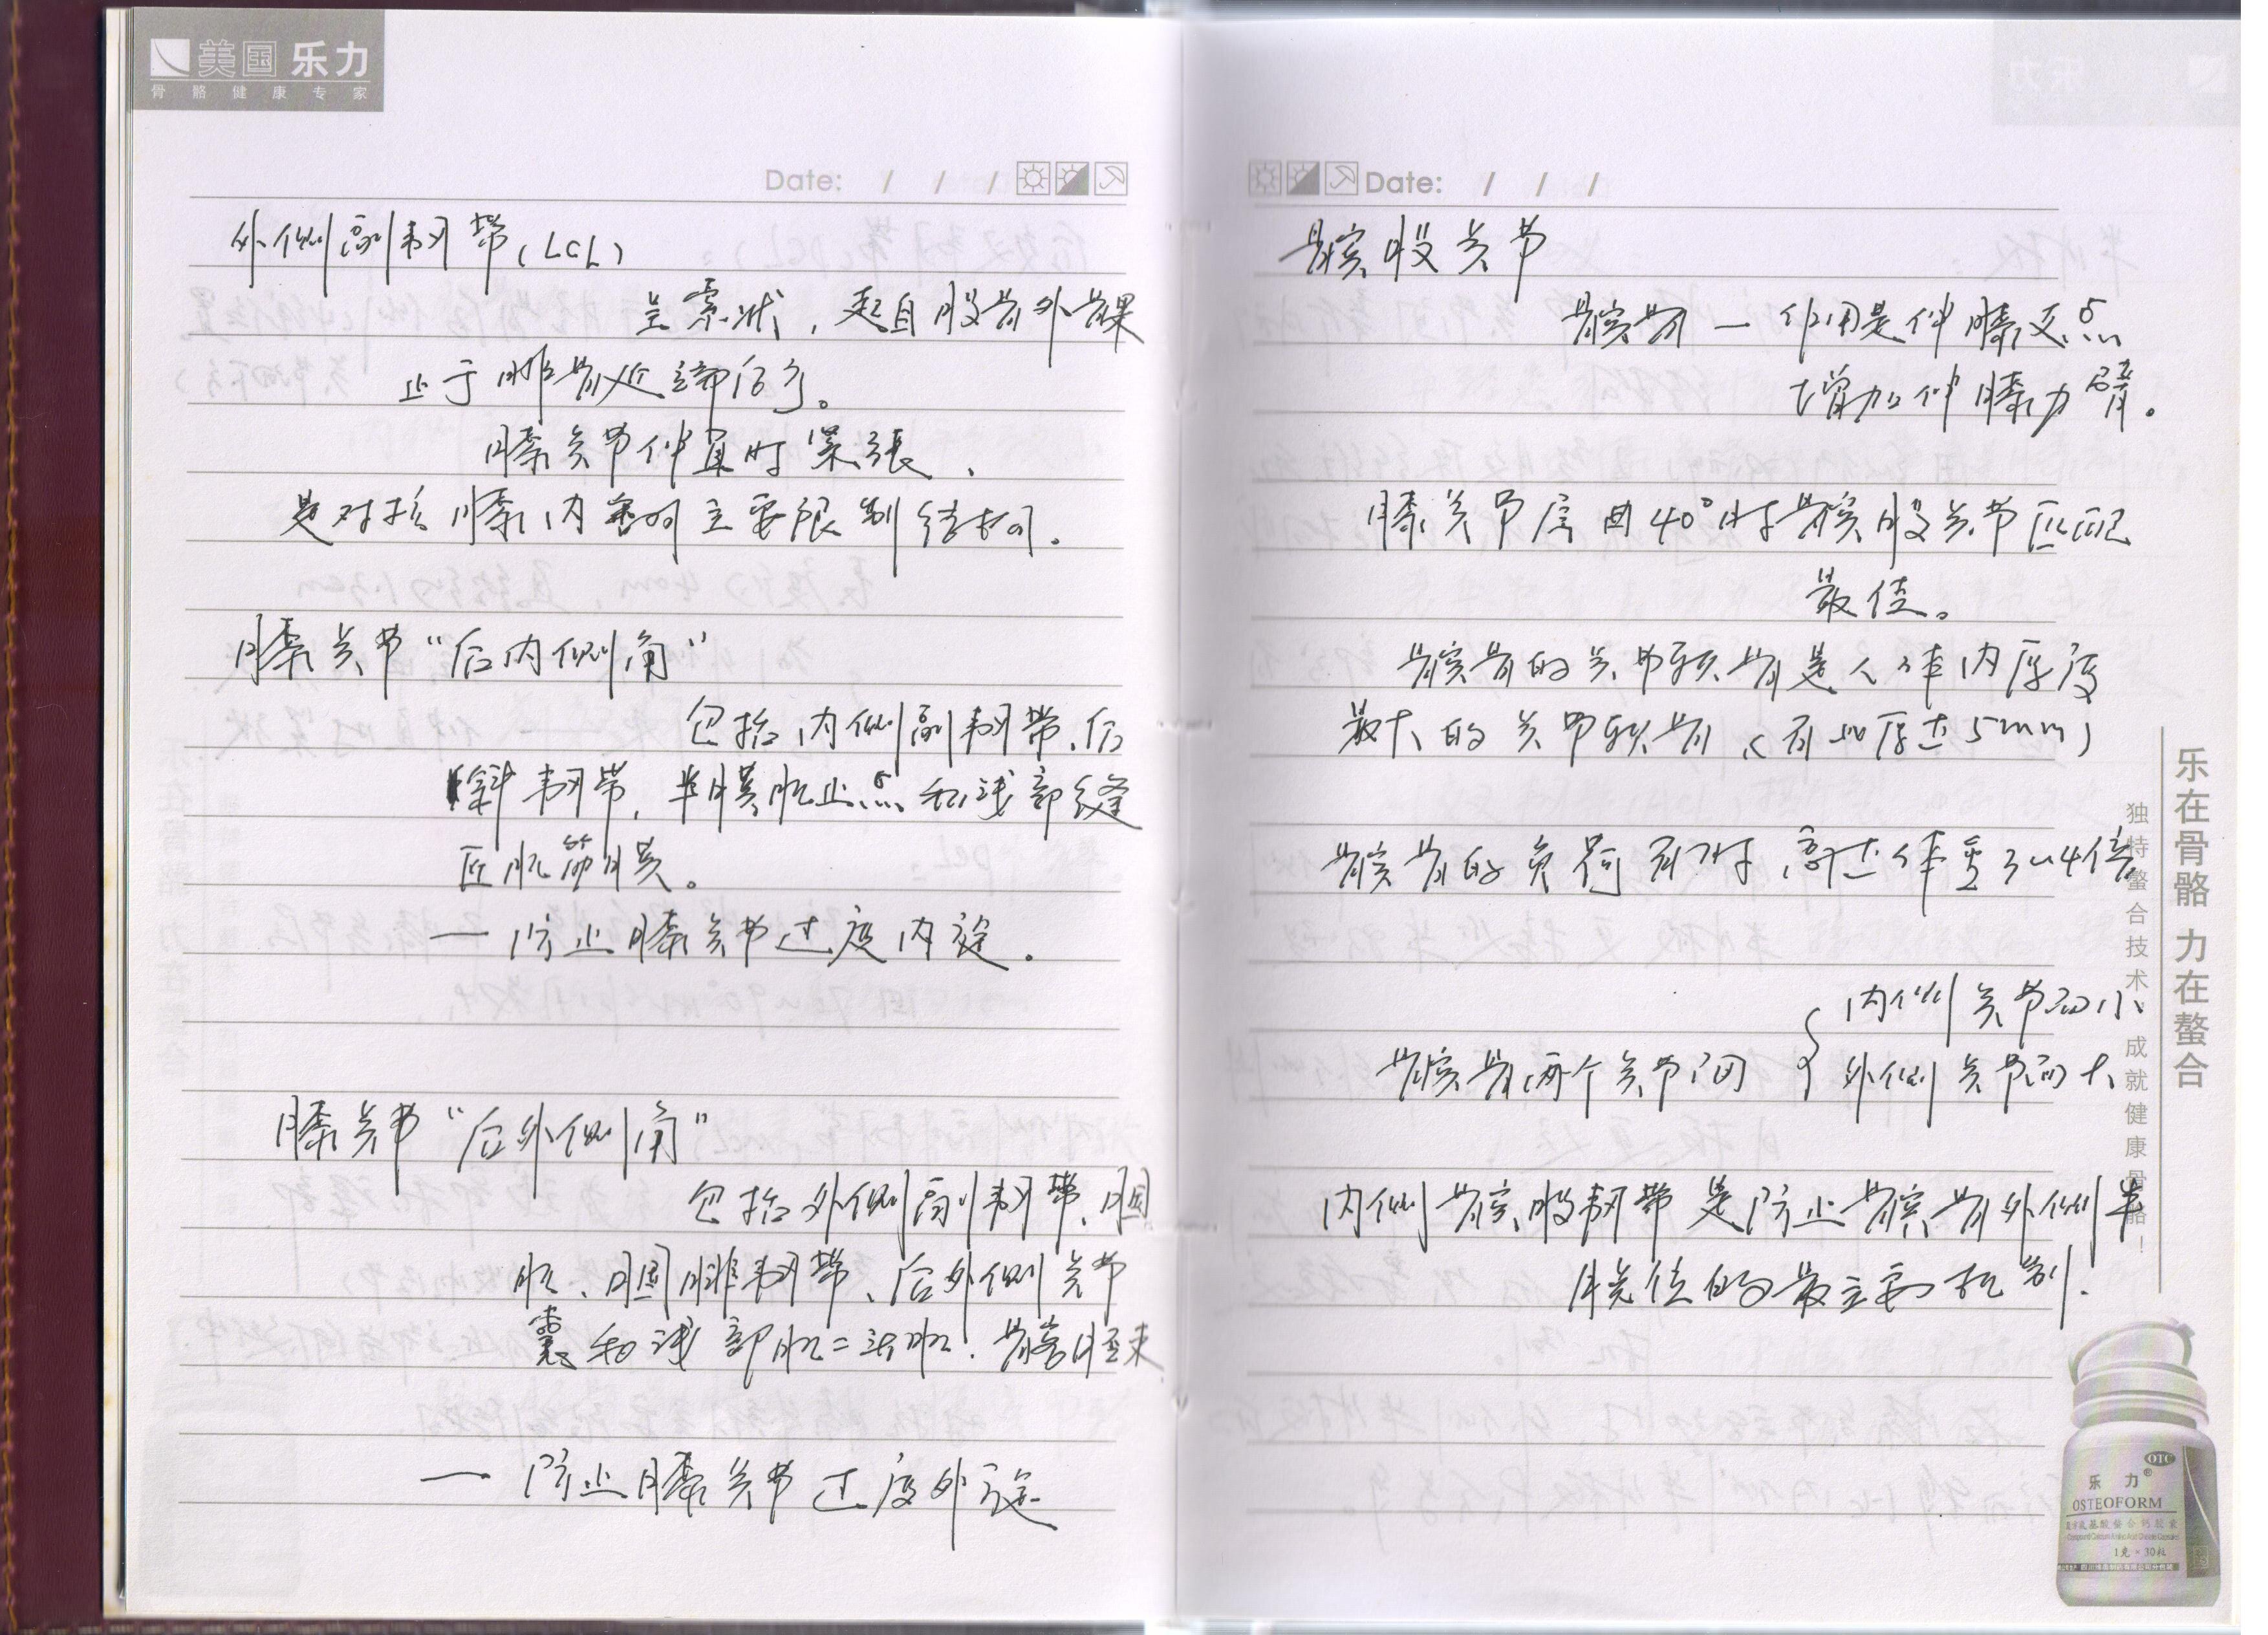 美国 乐力
骨骼健康专家
Date: / / /
外侧副韧带(LCL)
呈索状，起自股骨外髁
止于腓骨近端后方。
膝关节伸直时紧张、
是对抗膝内翻的主要限制结构.
膝关节“后内侧角”
包括内侧副韧带、后
斜韧带，半膜肌止点和浅部缝
匠肌筋膜。
— 防止膝关节过度内旋。
膝关节“后外侧角”
包括外侧副韧带、腘
肌、腘腓韧带、后外侧关节
囊和浅部肱二头肌. 髂胫束
— 防止膝关节过度外旋
Date: / / /
髌股关节
髌骨 — 作用是伸膝支点
增加伸膝力臂。
膝关节屈曲40°时髌股关节匹配
最佳。
髌骨的关节软骨是人体内厚度
最大的关节软骨（有的厚达5mm）
髌骨的负荷有时高达体重3~4倍
髌骨两个关节面
内侧关节面小
外侧关节面大
内侧髌股韧带是防止髌骨外侧半
脱位的最主要机制.
乐在骨骼 力在螯合
独特螯合技术，成就健康骨骼！
OTC
乐力®
OSTEOFORM
复方氨基酸螯合钙胶囊
1克×30粒